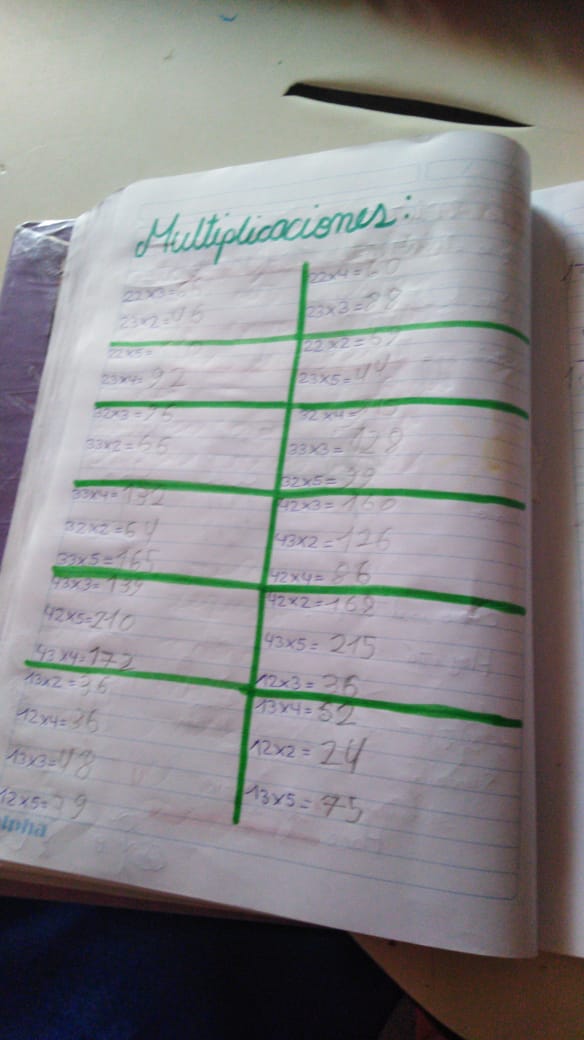 Multiplicaciones:
22x3=
23x2=46
22x5=
23x4=92
32x3=96
33x2=66
33x4=132
32x2=64
33x5=165
43x3=139
42x5=210
43x4=172
13x2=36
12x4=36
13x3=48
12x5=
22x4=
23x3=88
22x2=69
23x5=44
32x4=
33x3=128
32x5=99
42x3=160
43x2=126
42x4=86
42x2=168
43x5=215
12x3=36
13x4=52
12x2=24
13x5=75